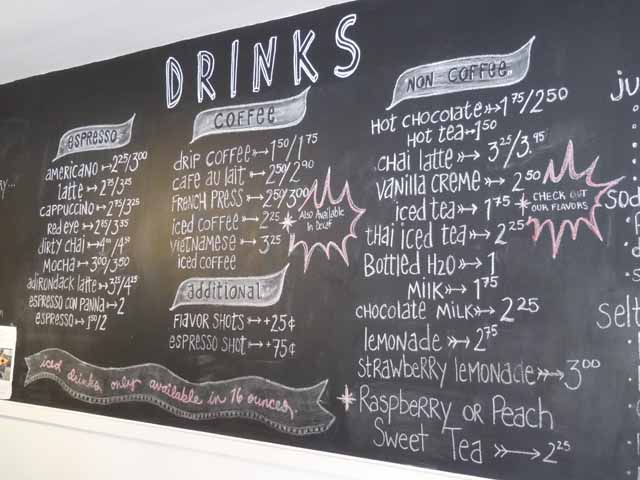 DRINKS
espresso
americano → 2²⁵/3⁰⁰
latte → 2⁷⁵/3²⁵
cappuccino → 2⁷⁵/3²⁵
red eye → 2⁷⁵/3³⁵
dirty chai → 4⁰⁰/4⁵⁰
MOCHA → 3⁰⁰/3⁵⁰
adirondack latte → 3⁷⁵/4²⁵
espresso con panna → 2
espresso → 1⁵⁰/2
COFFEE
drip coffee → 1⁵⁰/1⁷⁵
cafe au lait → 2⁵⁰/2⁹⁰
FRENCH PRESS → 2⁵⁰/3⁰⁰
iced coffee → 2²⁵
vietnamese → 3²⁵
iced coffee
* Also Available
In Decaf
additional
FLAVOR SHOTS → +25¢
espresso SHOT → +75¢
iced drinks only available in 16 ounces.
NON COFFEE
HOT CHOCOLATE → 1⁷⁵/2⁵⁰
HOT tea → 1⁵⁰
CHAI latte → 3²⁵/3.⁹⁵
vanilla CREME → 2⁵⁰
iced tea → 1⁷⁵
tHAI iced tea → 2²⁵
Bottled H2O → 1
Milk → 1⁷⁵
CHOCOLATE MILK → 2²⁵
lemonade → 2⁷⁵
STRAWBERRY lemonade → 3⁰⁰
* RASPBERRY OR PEACH
SWEET TEA → 2²⁵
* CHECK OUT
OUR FLAVORS